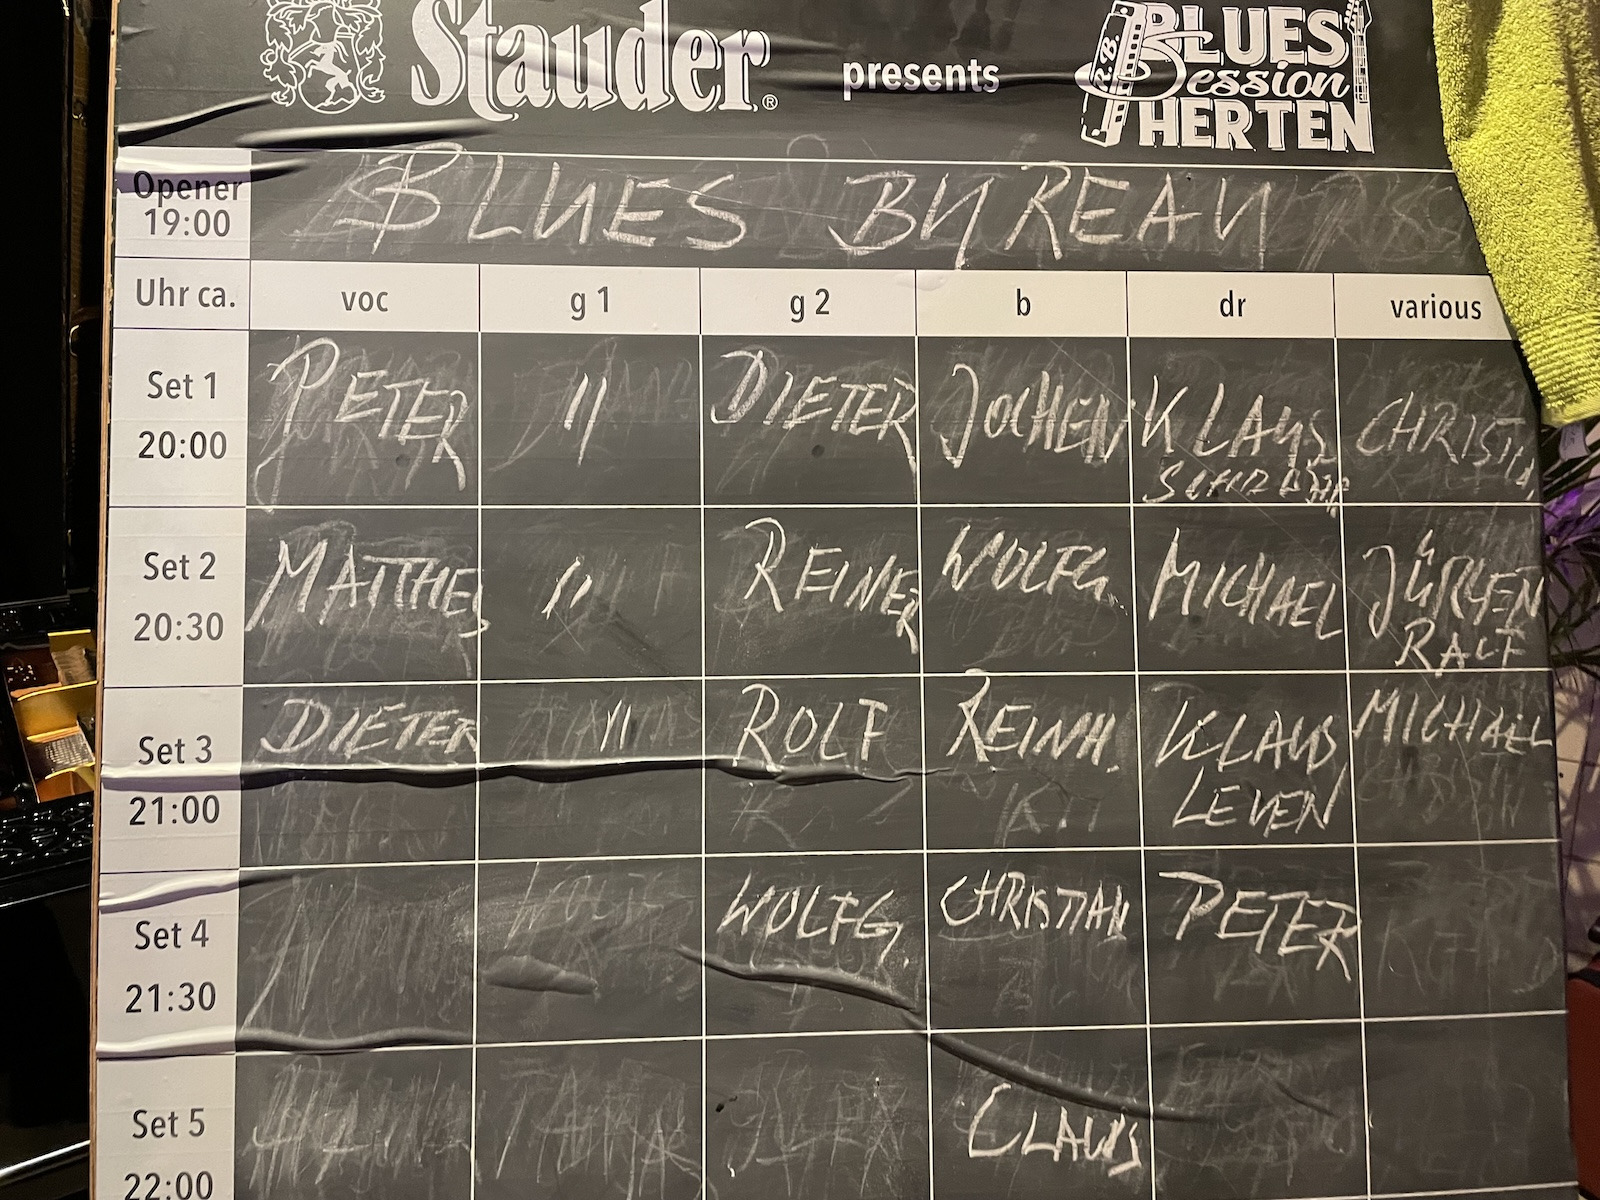 Stauder®
presents
R.B. BLUES
Session
HERTEN
Opener
19:00
BLUES BUREAU
Uhr ca. voc g 1 g 2 b dr various
Set 1
20:00
PETER " DIETER JOCHEN KLAUS
Set 2
20:30
MATTHES " REINER WOLFG. MICHAEL JÜRGEN
RALF
Set 3
21:00
DIETER " ROLF REINH. KLAUS MICHAEL
LEVEN
Set 4
21:30
WOLFG CHRISTIAN PETER
Set 5
22:00
CLAUS